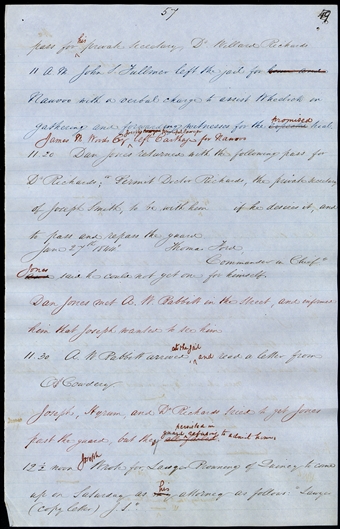 57
49
pass for his private Secretary, Dr Willard Richards
11 A M John S. Fullmer left the jail for
Nauvoo with a verbal charge to assist Wheelock in
gathering and forwarding witnesses for the promised trial
James W. Woods Esqr left Carthage for Nauvoo
11.20 Dan Jones returned with the following pass for
Dr Richards; "Permit Doctor Richards, the private secretary
of Joseph Smith, to be with him if he desires it, and
to pass and repass the guard.
Jun 27th 1844 Thomas Ford
Commander in Chief"
Jones said he could not get one for himself.
Dan Jones met A. W. Babbitt in the street, and informed
him that Joseph wanted to see him
11.30 A. W. Babbitt arrived at the jail and read a letter from
O. Cowdery
Joseph, Hyrum, and Dr Richards tried to get Jones
past the guard, but they persisted in
guard refusing to admit him.
12½ noon Joseph Wrote for Lawyer Browning of Quincy to come
up on Saturday as his attorney as follows "Lawyer
(copy letter) J. S."